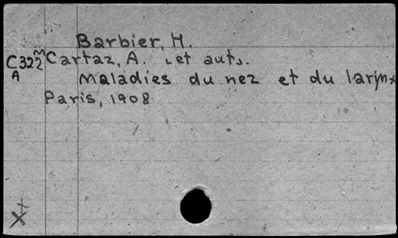 Barbier, H.
C322m Cartaz, A. [et auts.
A Maladies du nez et du larynx
Paris, 1908
X